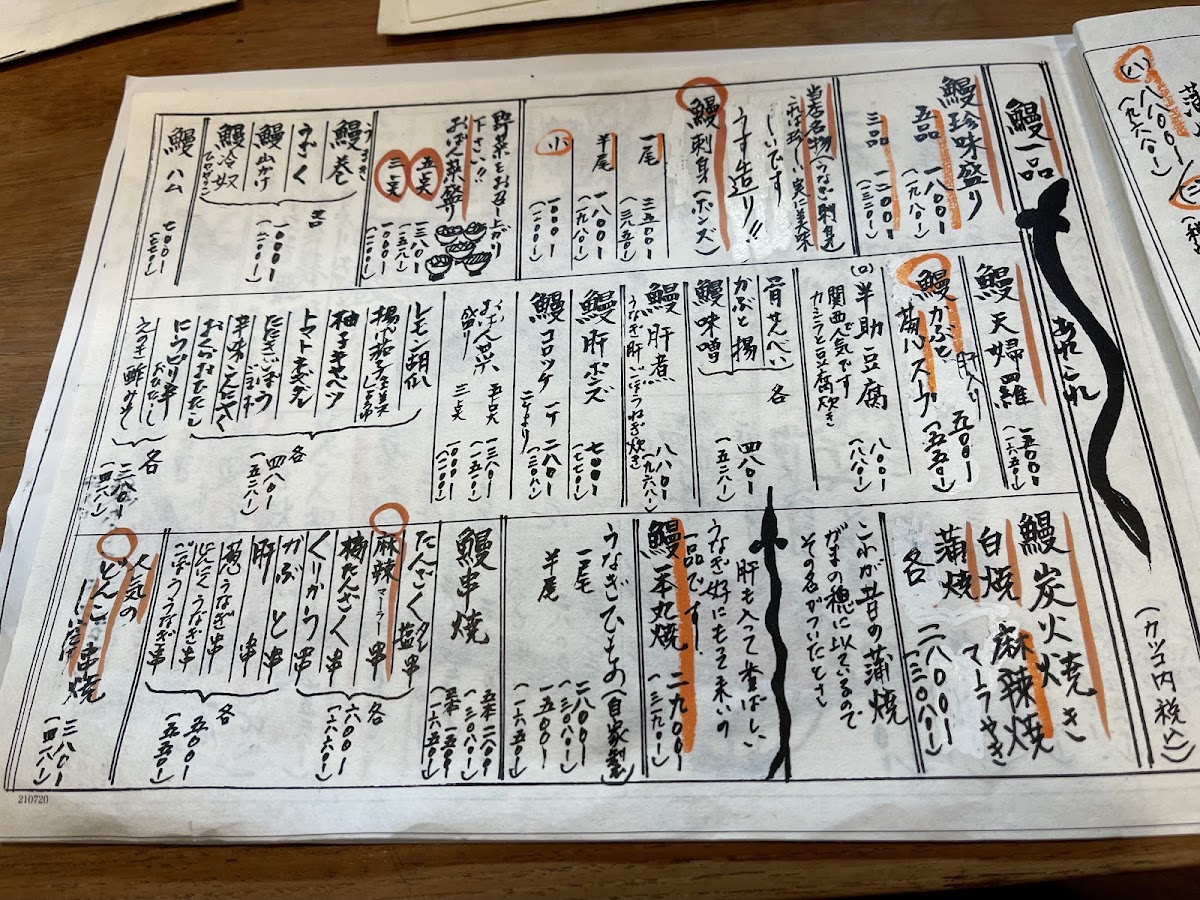 鰻一品
あれこれ
(カッコ内税込)
鰻珍味盛り
五品 一八〇〇ー
(一九八〇ー)
三品 一二〇〇ー
(一三二〇ー)
当店名物(うなぎ刺身
これは珍しい実に美味
しいです
うす造り!!
鰻刺身(ポンズ)
一尾 三五〇〇ー
(三八五〇ー)
半尾 一八〇〇ー
(一九八〇ー)
小 一〇〇〇ー
(一一〇〇ー)
野菜もお召し上がり
下さい!!
おばん菜盛り
五点 一三八〇ー
(一五一八ー)
三点 一〇〇〇ー
(一一〇〇ー)
うまき
鰻巻
うざく
鰻山かけ
鰻冷奴
各 一〇〇〇ー
(一一〇〇ー)
鰻ハム 七〇〇ー
(七七〇ー)
鰻天婦羅
肝入り
一五〇〇ー
(一六五〇ー)
鰻かぶと
蒲スープ
五〇〇ー
(五五〇ー)
半助豆腐
関西で人気です
カシラと豆腐炊き
八〇〇ー
(八八〇ー)
骨せんべい
かぶと揚
鰻味噌
各 四八〇ー
(五二八ー)
鰻肝煮
うなぎ肝 ごぼうねぎ炊き
八八〇ー
(九六八ー)
鰻肝ポンズ 七〇〇ー
(七七〇ー)
鰻コロッケ 一ケ 二八〇ー
二ケより (三〇八ー)
おばん菜
盛り
五点 一三八〇ー
(一五一八ー)
三点 一〇〇〇ー
(一一〇〇ー)
レモン胡瓜
揚げ茄子生姜
柚子キャベツ
トマトオニオン
たたきごぼう
辛味こんにゃく
おくらおひたし
にらピリ辛
各 四八〇ー
(五二八ー)
おひたし
えのき酢みそ
各 三八〇ー
(四一八ー)
鰻炭火焼き
白焼 麻辣焼
マーラやき
蒲焼
各 二八〇〇ー
(三〇八〇ー)
これが昔の蒲焼
がまの穂に似ているので
その名がついたとさ
肝も入って香ばしい
うなぎ好にもって来いの
一品です。
鰻一本丸焼 二九〇〇ー
(三一九〇ー)
うなぎひもの(自家製)
一尾 二八〇〇ー
(三〇八〇ー)
半尾 一五〇〇ー
(一六五〇ー)
鰻串焼
十本 二八〇〇ー
(三〇八〇ー)
五本 一五〇〇ー
(一六五〇ー)
たんざく 塩 串
麻辣 マーラー 串
梅たんざく串
くりから串
各 六〇〇ー
(六六〇ー)
かぶと串
肝串
ねぎうなぎ串
にんにくうなぎ串
ごぼううなぎ串
各 五〇〇ー
(五五〇ー)
人気の
とんこ串焼
三八〇ー
(四一八ー)
210720